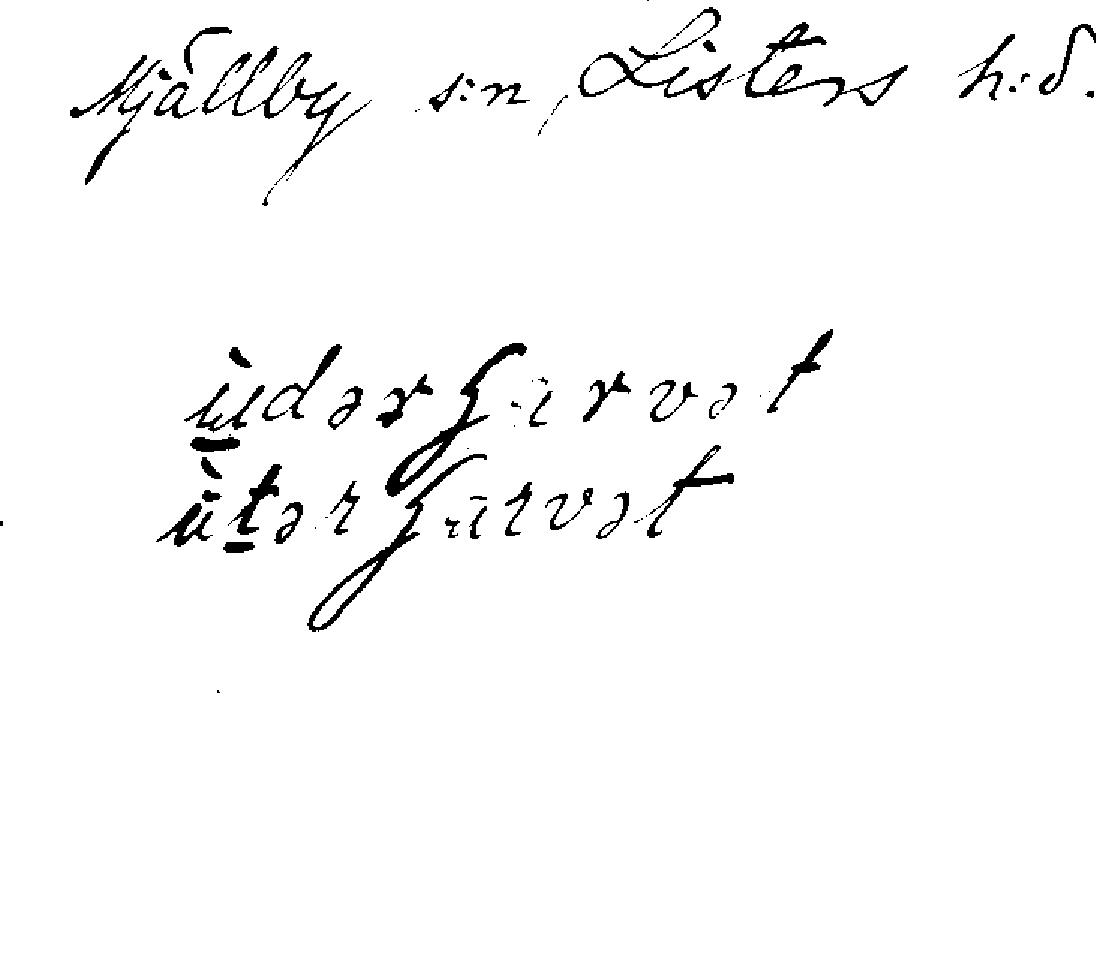 Mjällby s:n, Listers h:d.
ùdərʒarvət
ùtərʒarvət